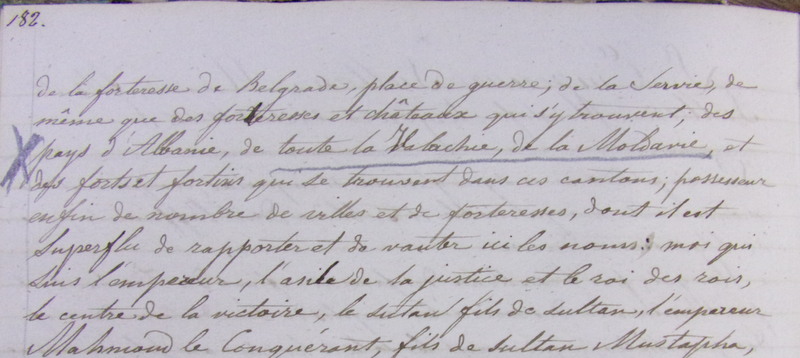 182.
de la forteresse de Belgrade, place de guerre; de la Servie, de
même que des forteresses et châteaux qui s'y trouvent; des
pays d'Albanie, de toute la Valachie, de la Moldavie, et
des forts et fortins qui se trouvent dans ces cantons; possesseur
enfin de nombre de villes et de forteresses, dont il est
superflu de rapporter et de vanter ici les noms: moi qui
suis l'empereur, l'asile de la justice et le roi des rois,
le centre de la victoire, le sultan fils de sultan, l'empereur
Mahmoud le Conquérant, fils de sultan Mustapha,